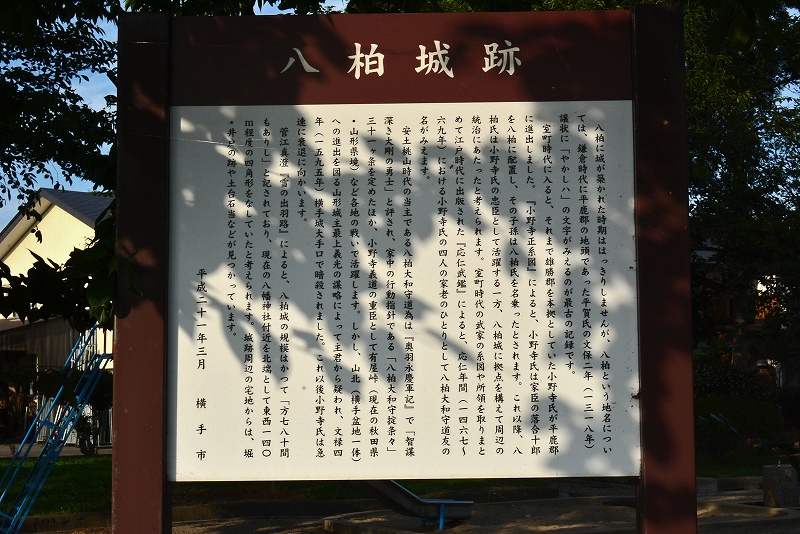 八柏城跡
八柏に城が築かれた時期ははっきりしませんが、八柏という地名につい
ては、鎌倉時代に平鹿郡の地頭であった平賀氏の文保二年（一三一八年）
譲状に「やかしハ」の文字がみえるのが最古の記録です。
室町時代に入ると、それまで雄勝郡を本拠としていた小野寺氏が平鹿郡
に進出しました。『小野寺正系図』によると、小野寺氏は家臣の落合十郎
を八柏に配置し、その子孫は八柏氏を名乗ったとされます。これ以降、八
柏氏は小野寺氏の忠臣として活躍する一方、八柏城に拠点を構えて周辺の
統治にあたったと考えられます。室町時代の武家の系図や所領を取りまと
めて江戸時代に出版された『応仁武鑑』によると、応仁年間（一四六七～
六九年）における小野寺氏の四人の家老のひとりとして八柏大和守道友の
名がみえます。
安土桃山時代の当主である八柏大和守道為は『奥羽永慶軍記』で「智謀
深き大剛の勇士」と評され、家中の行動指針である「八柏大和守掟条々」
三十一ヶ条を定めたほか、小野寺義道の重臣として有屋峠（現在の秋田県
・山形県境）など各地の戦いで活躍します。しかし、山北（横手盆地一体）
への進出を図る山形城主最上義光の謀略によって主君から疑われ、文禄四
年（一五九五年）横手城大手口で暗殺されました。これ以後小野寺氏は急
速に衰退に向かいます。
菅江真澄『雪の出羽路』によると、八柏城の規模はかつて「方七八十間
もありし」と記されており、現在の八幡神社付近を北端として東西一四〇
ｍ程度の四角形をなしていたと考えられます。城跡周辺の宅地からは、堀
・井戸の跡や土台石当などが見つかっています。
平成二十一年三月　横手市